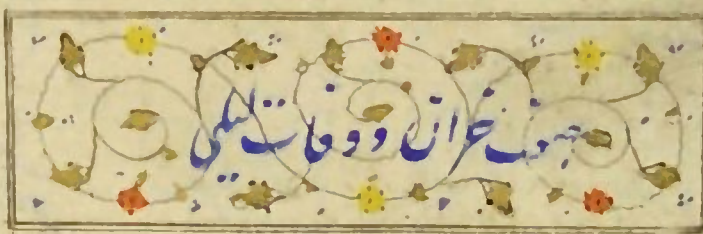 صفت خزان و وفات لیلی